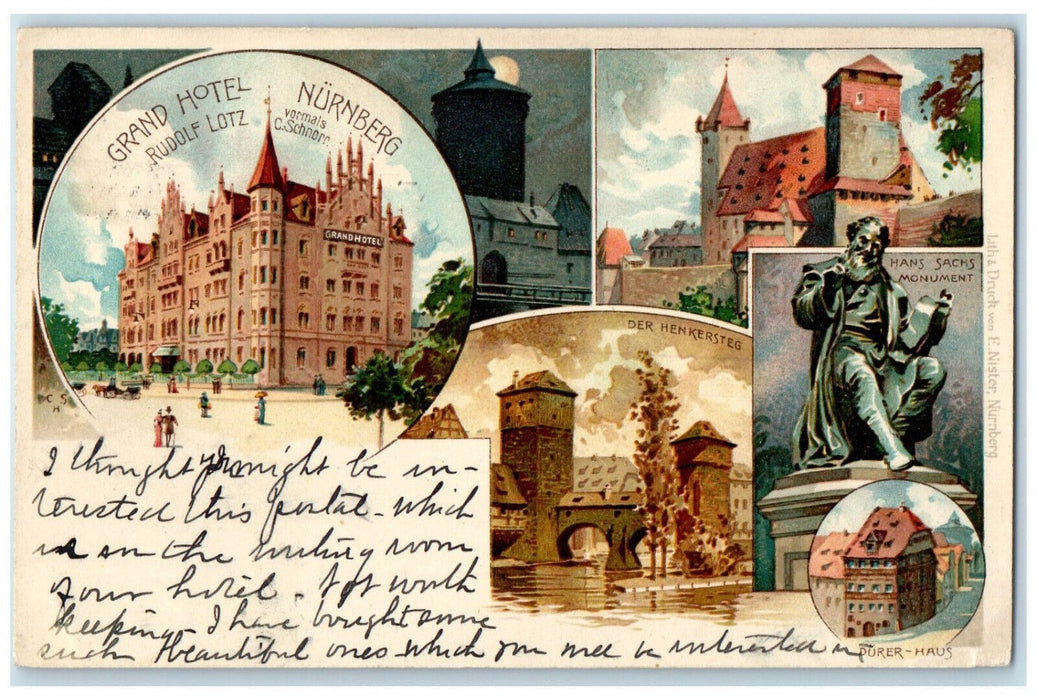 GRAND HOTEL NÜRNBERG
RUDOLF LOTZ vormals
C. Schnorr
GRAND HOTEL
C S
H
DER HENKERSTEG
HANS SACHS
MONUMENT
Lith & Druck von E. Nister, Nürnberg
DÜRER-HAUS
I thought you might be in-
terested this postal - which
is on the writing room
of our hotel - Not worth
keeping - I have bought some
such beautiful ones which you will be interested in